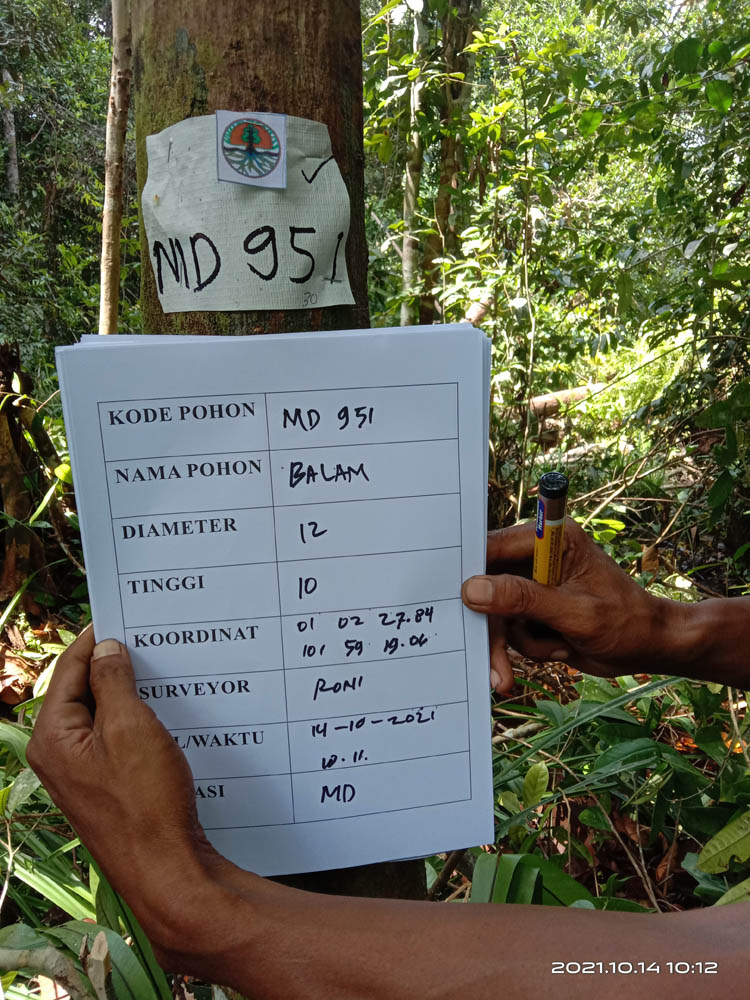 MD 951
30
KODE POHON MD 951
NAMA POHON BALAM
DIAMETER 12
TINGGI 10
KOORDINAT 01 02 27.84
101 59 19.06
SURVEYOR RONI
L/WAKTU 14-10-2021
10.11.
ASI MD
2021.10.14 10:12